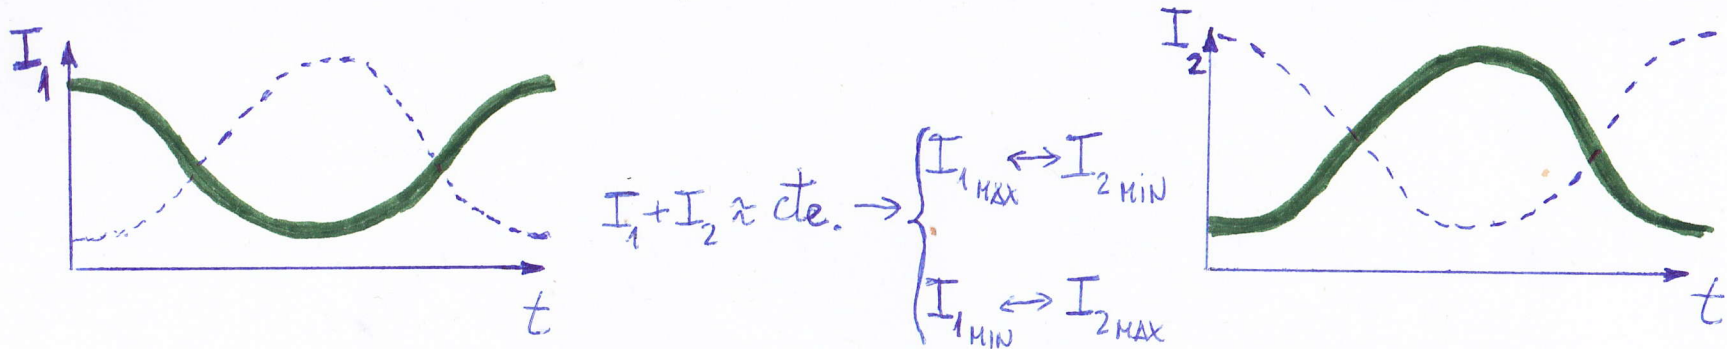 I₁
t
I₁ + I₂ ≈ cte. → { I₁ MAX ↔ I₂ MIN
I₁ MIN ↔ I₂ MAX
I₂
t